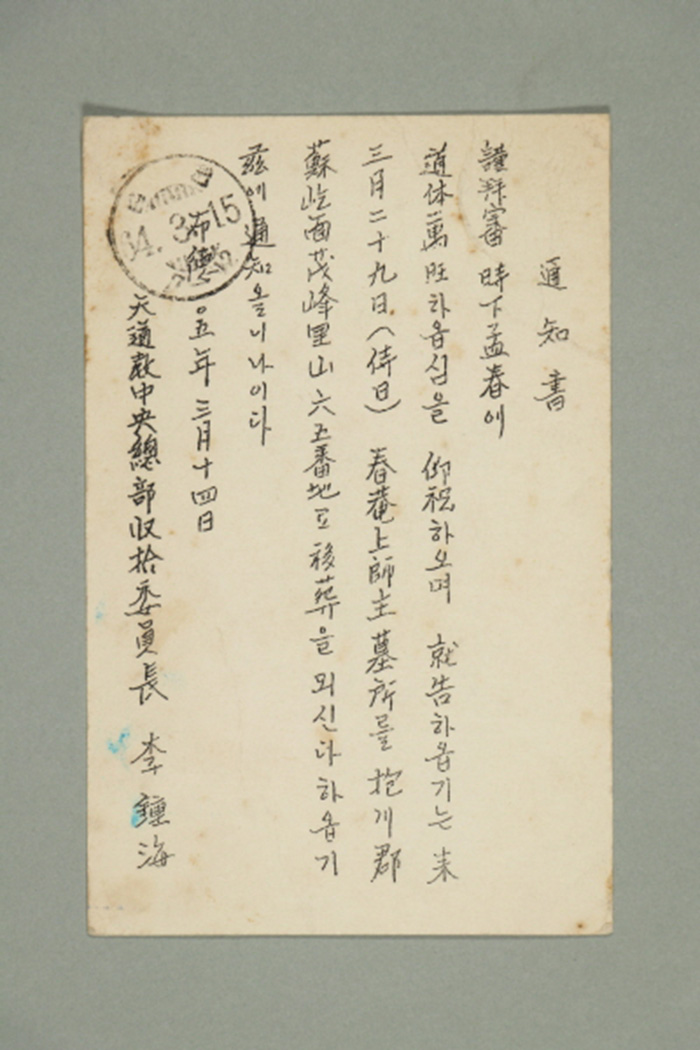 通知書
謹拜審 時下孟春에
道体萬旺하옵심을 仰祝하오며 就告하옵기는 来
三月二十九日(侍日) 春菴上師主墓所를 抱川郡
蘇屹面茂峰里山六五番地로 移葬을 뫼신다하옵기
玆에 通知올니나이다
布德 〇五年 三月十四日
天道敎中央總部收拾委員長 李鍾海
64. 3. 15